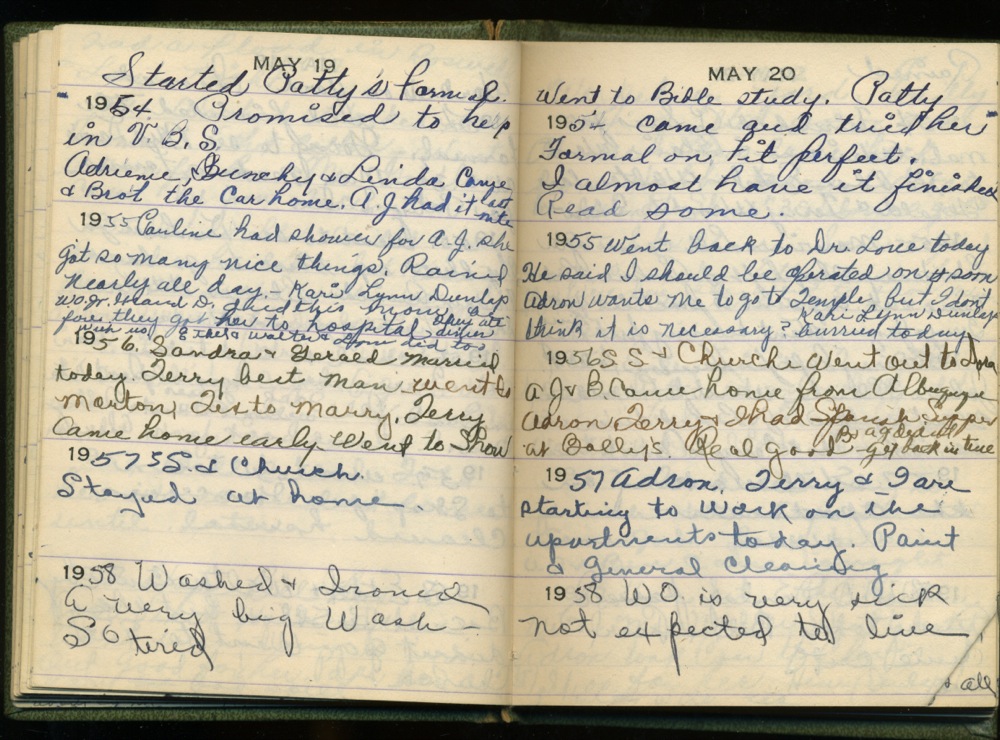 MAY 19
Started Patty's Formal.
1954 Promised to help
in V. B. S.
Adrienne, & Linda Came
& Brot the Car home. A. J. had it last nite
1955 Pauline had shower for A. J. she
got so many nice things. Rained
nearly all day. Kari Lynn Dunlap
W.O. Jr. & D. died this morning be
fore they got her to hospital they ate dinner
with us & Walter & did too
1956. Sandra & Gerald Married
today. Terry best man went to
Morton, Tex to Marry. Terry
Came home early Went to Show
1957 S.S. & Church.
Stayed at home.
1958 Washed & Ironed
A very big Wash -
So tired
MAY 20
Went to Bible study. Patty
1954 came and tried her
Formal on Fit perfect.
I almost have it finished
Read some.
1955 Went back to Dr. Love today
He said I should be operated on & soon
Adron wants me to go to Temple, but I dont
think it is necessary? Kari Lynn Dunlap burried today
1956 S S & Church Went out to
A J & B. Came home from Albuquque
Adron Terry & I had Spanish Supper
at Bally's. Real good B & A J didnt get back in time
1957 Adron, Terry & I are
starting to work on the
apartments today. Paint
& general cleaning.
1958 W.O. is very sick
not expected to live
all